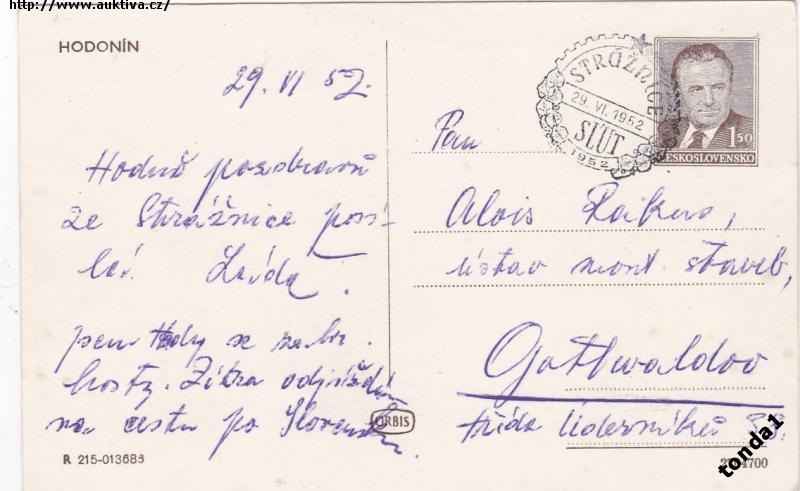 http://www.auktiva.cz/
HODONÍN
29. VI 52.
Hodně pozdravů
ze Strážnice posí-
lá
jsem
se
hosty. Zítra odjíždím
na cestu po Slovensku.
ORBIS
R 215-013683
STRÁŽNICE
29. VI. 1952
SLUT
1952
1.50
ČESKOSLOVENSKO
Pan
Alois
ústav mont. staveb,
Gottwaldov
třída úderníků
4700
tonda1